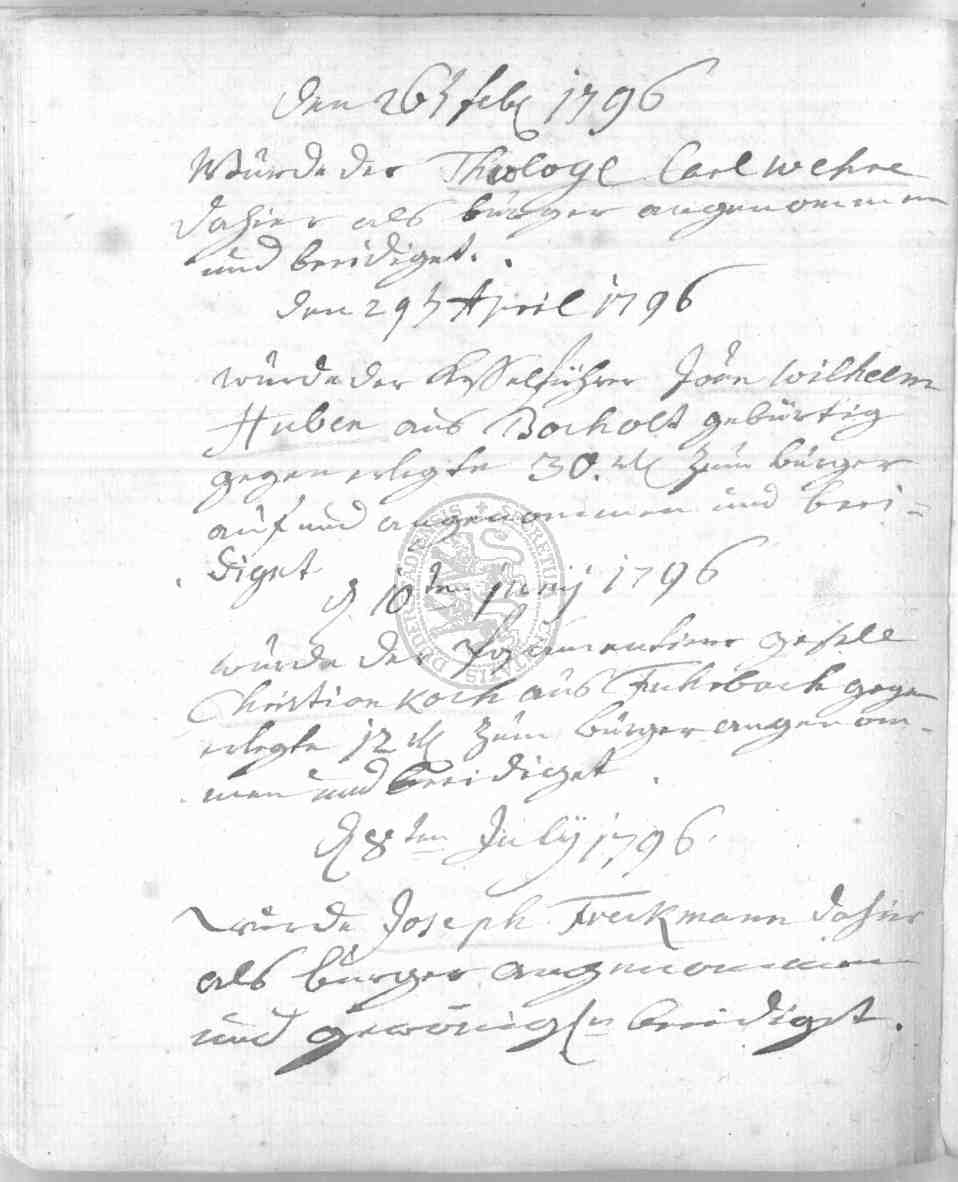 den 26t feb 1796
Wurde der Theologe Carl Wehre
dahier als bürger angenommen
und beeidiget.
den 29t April 1796
wurde der Jörn Wilhelm
Huben aus Bocholt gebürtig
gegen erlegte 30. rtl zum bürger
auf und angenommen und beei=
diget
d 10ten junij 1796
wurde der geselle
Christian Koch aus Fuhrbach gegen
erlegte 12 rtl zum bürger angenom=
men und beeidiget.
d 8ten July 1796.
wurde Joseph Freckmann dahier
als bürger angenommen
und beeidiget.